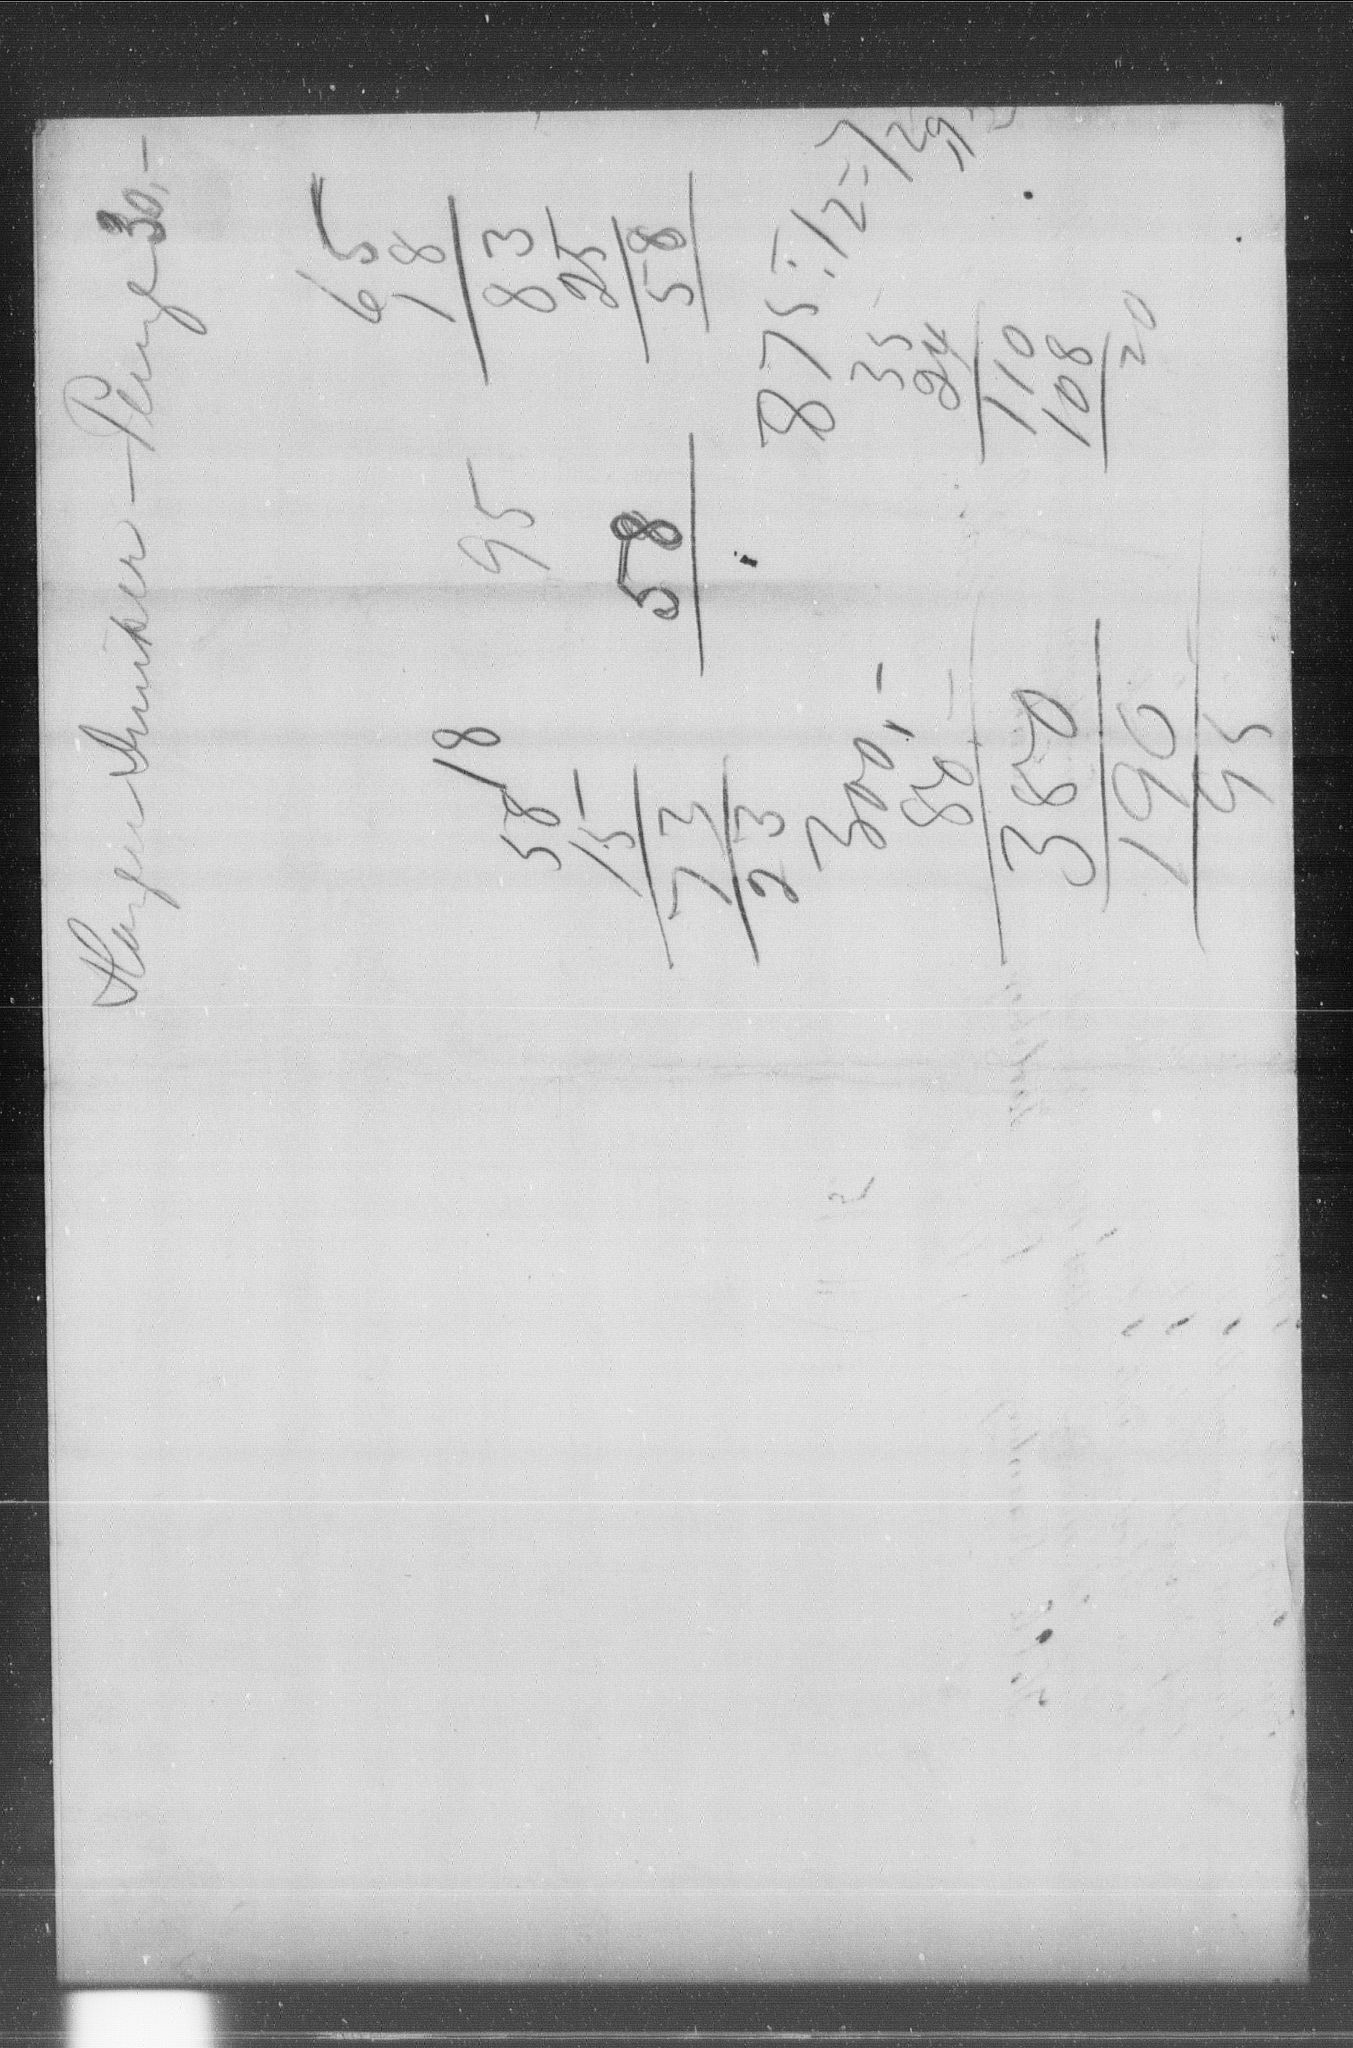 Penge 30,-
18
58
15
73
23
300,-
80,-
380
190
95
95
58
65
18
83
25
58
875:12=72,9
35
24
110
108
20